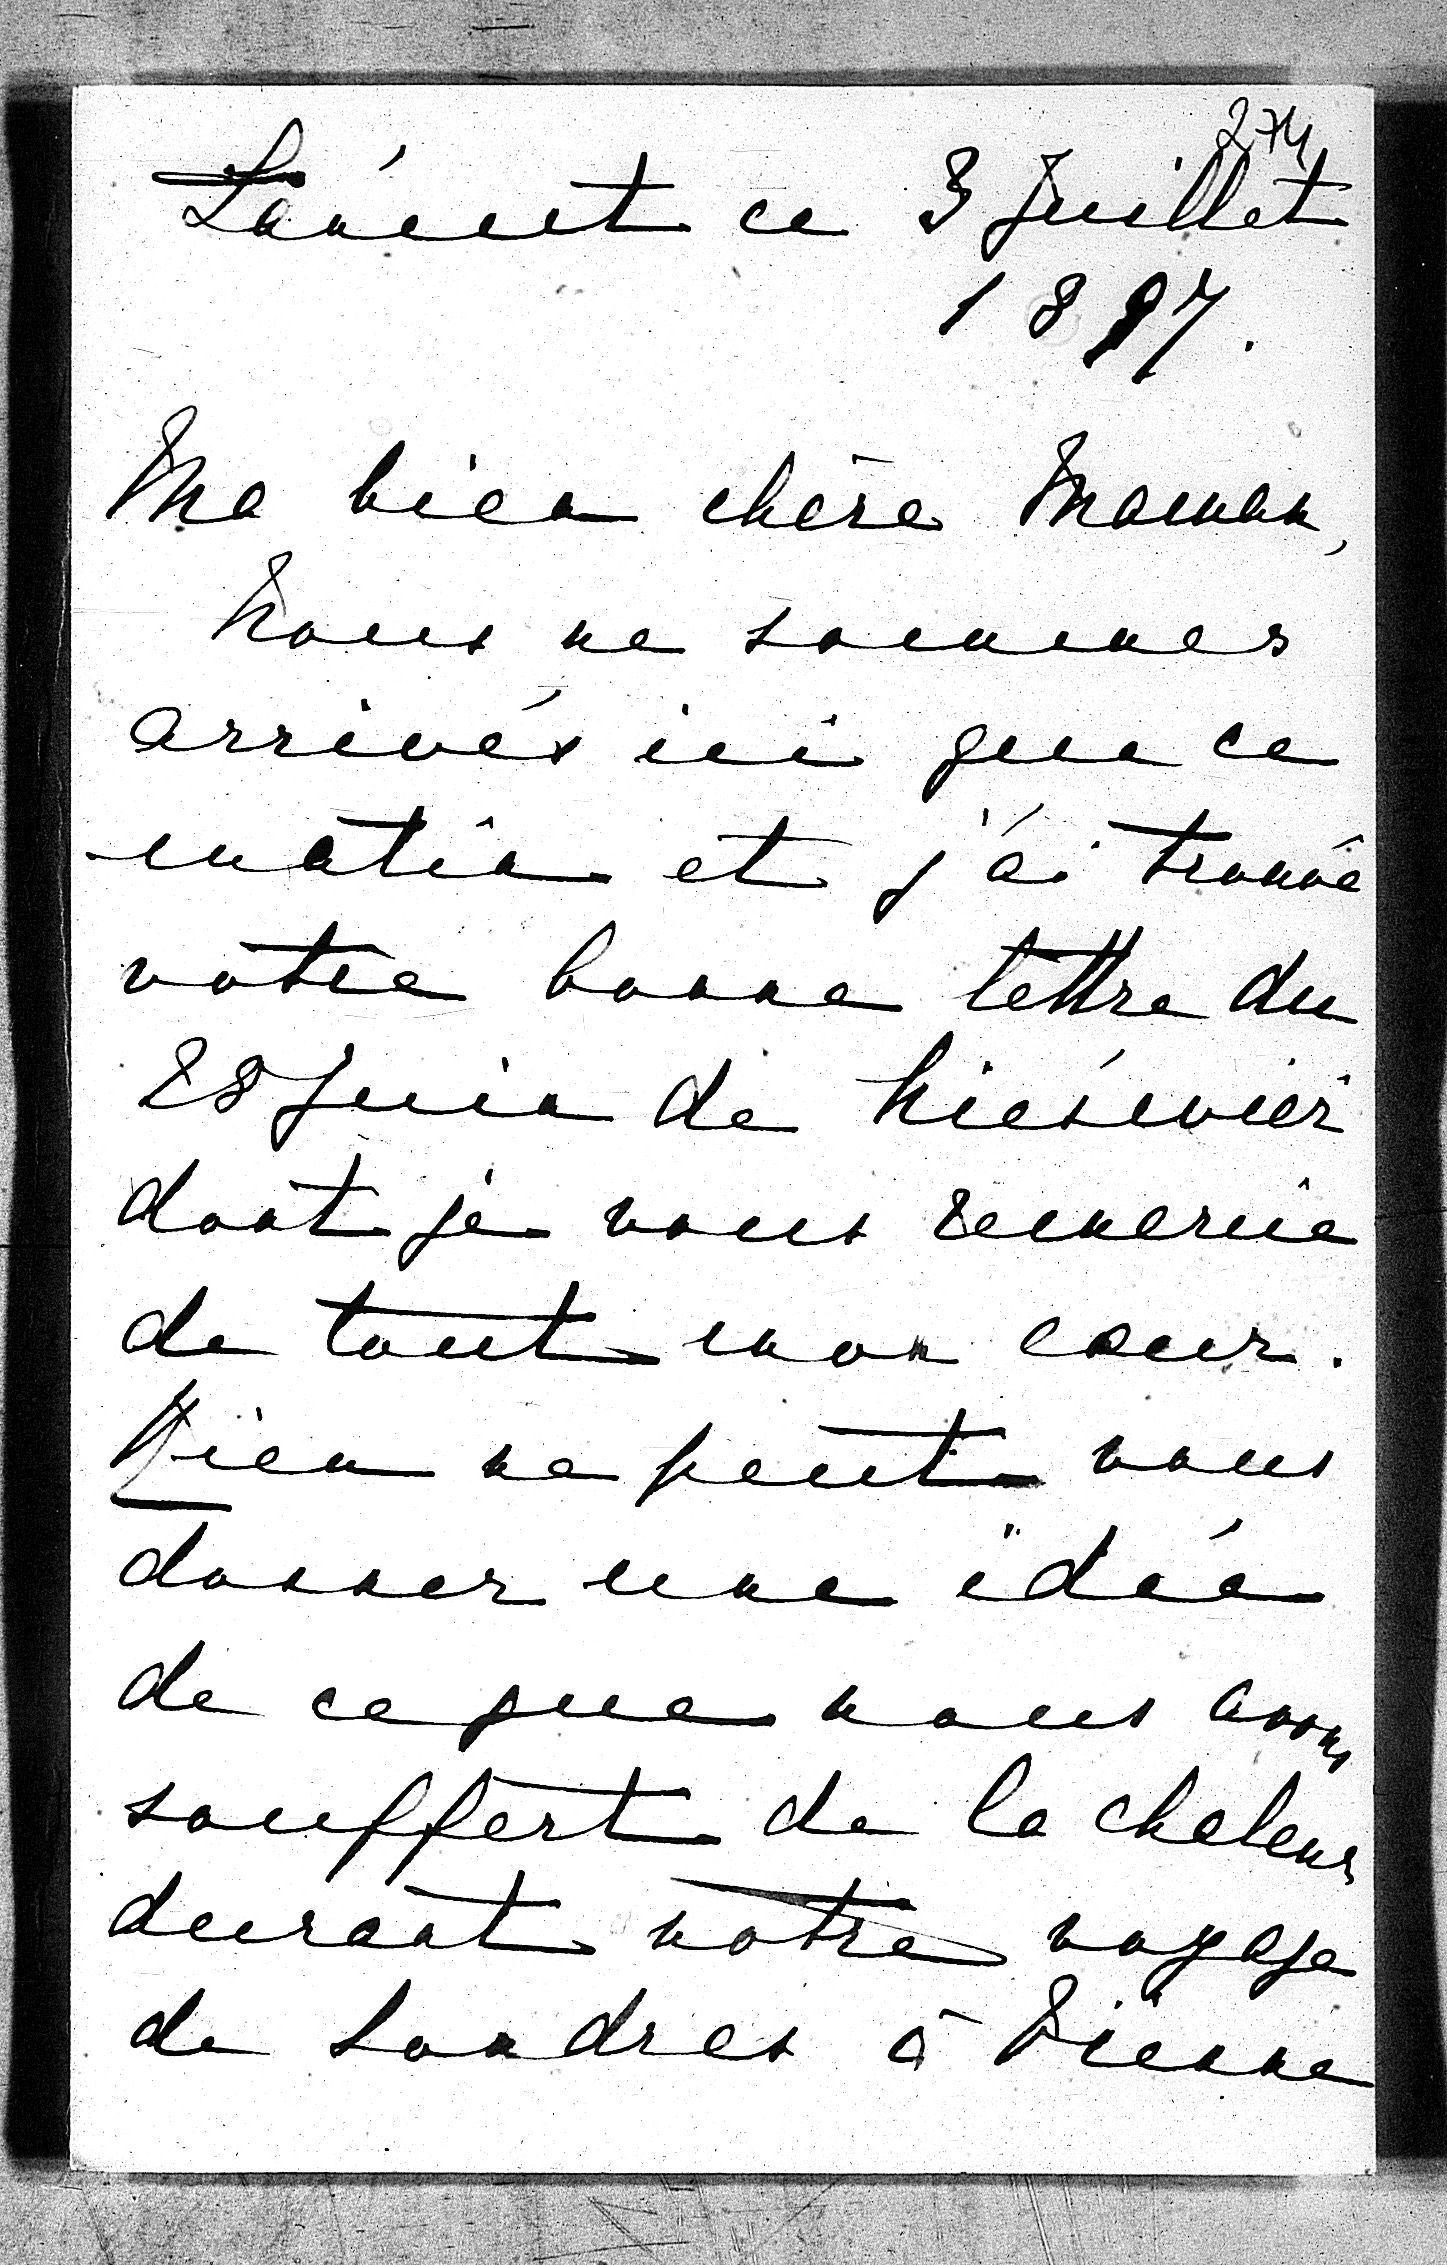 274
Láncut ce 3 Juillet
1897.
Ma bien chère Maman,
Nous ne sommes
arrivés ici que ce
matin et j'ai trouvé
votre bonne lettre du
28 Juin de
dont je vous remercie
de tout mon cœur.
Rien ne peut vous
donner une idée
de ce que nous avons
souffert de la chaleur
durant notre voyage
de Londres à Vienne